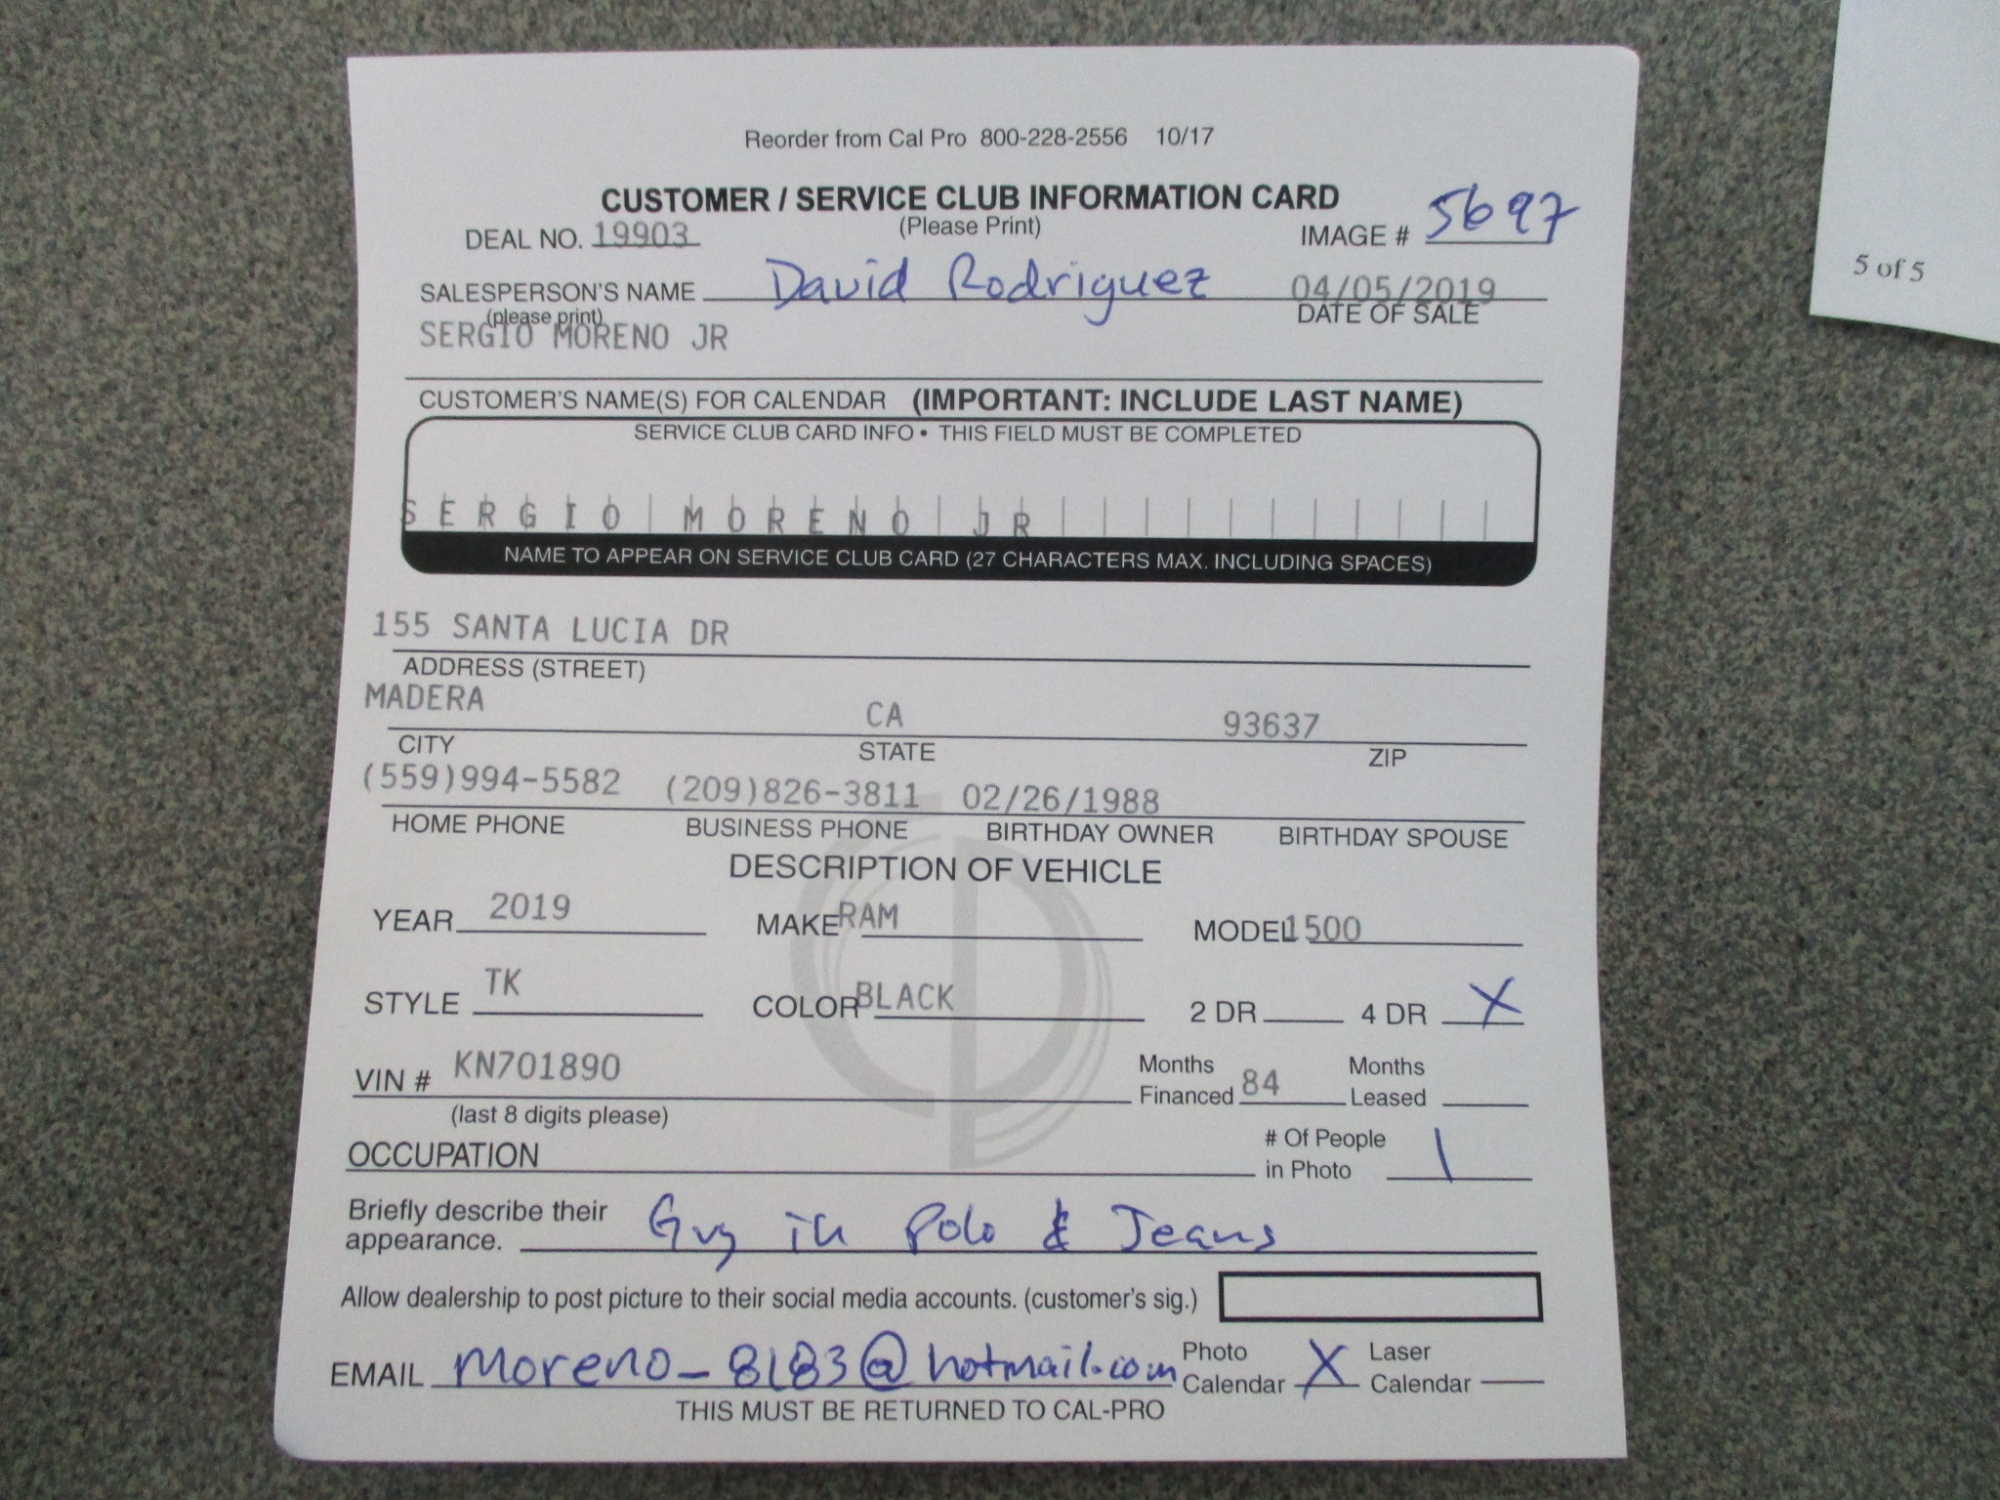 Reorder from Cal Pro 800-228-2556 10/17
CUSTOMER / SERVICE CLUB INFORMATION CARD
(Please Print)
DEAL NO. 19903
IMAGE # 5697
SALESPERSON'S NAME David Rodriguez 04/05/2019
(please print) DATE OF SALE
SERGIO MORENO JR
CUSTOMER'S NAME(S) FOR CALENDAR (IMPORTANT: INCLUDE LAST NAME)
SERVICE CLUB CARD INFO • THIS FIELD MUST BE COMPLETED
SERGIO MORENO JR
NAME TO APPEAR ON SERVICE CLUB CARD (27 CHARACTERS MAX. INCLUDING SPACES)
155 SANTA LUCIA DR
ADDRESS (STREET)
MADERA CA 93637
CITY STATE ZIP
(559)994-5582 (209)826-3811 02/26/1988
HOME PHONE BUSINESS PHONE BIRTHDAY OWNER BIRTHDAY SPOUSE
DESCRIPTION OF VEHICLE
YEAR 2019 MAKE RAM MODEL 1500
STYLE TK COLOR BLACK 2 DR 4 DR X
VIN # KN701890 Months Financed 84 Months Leased
(last 8 digits please)
OCCUPATION # Of People in Photo 1
Briefly describe their appearance. Guy in Polo & Jeans
Allow dealership to post picture to their social media accounts. (customer's sig.)
EMAIL moreno_8183@hotmail.com Photo Calendar X Laser Calendar
THIS MUST BE RETURNED TO CAL-PRO
5 of 5